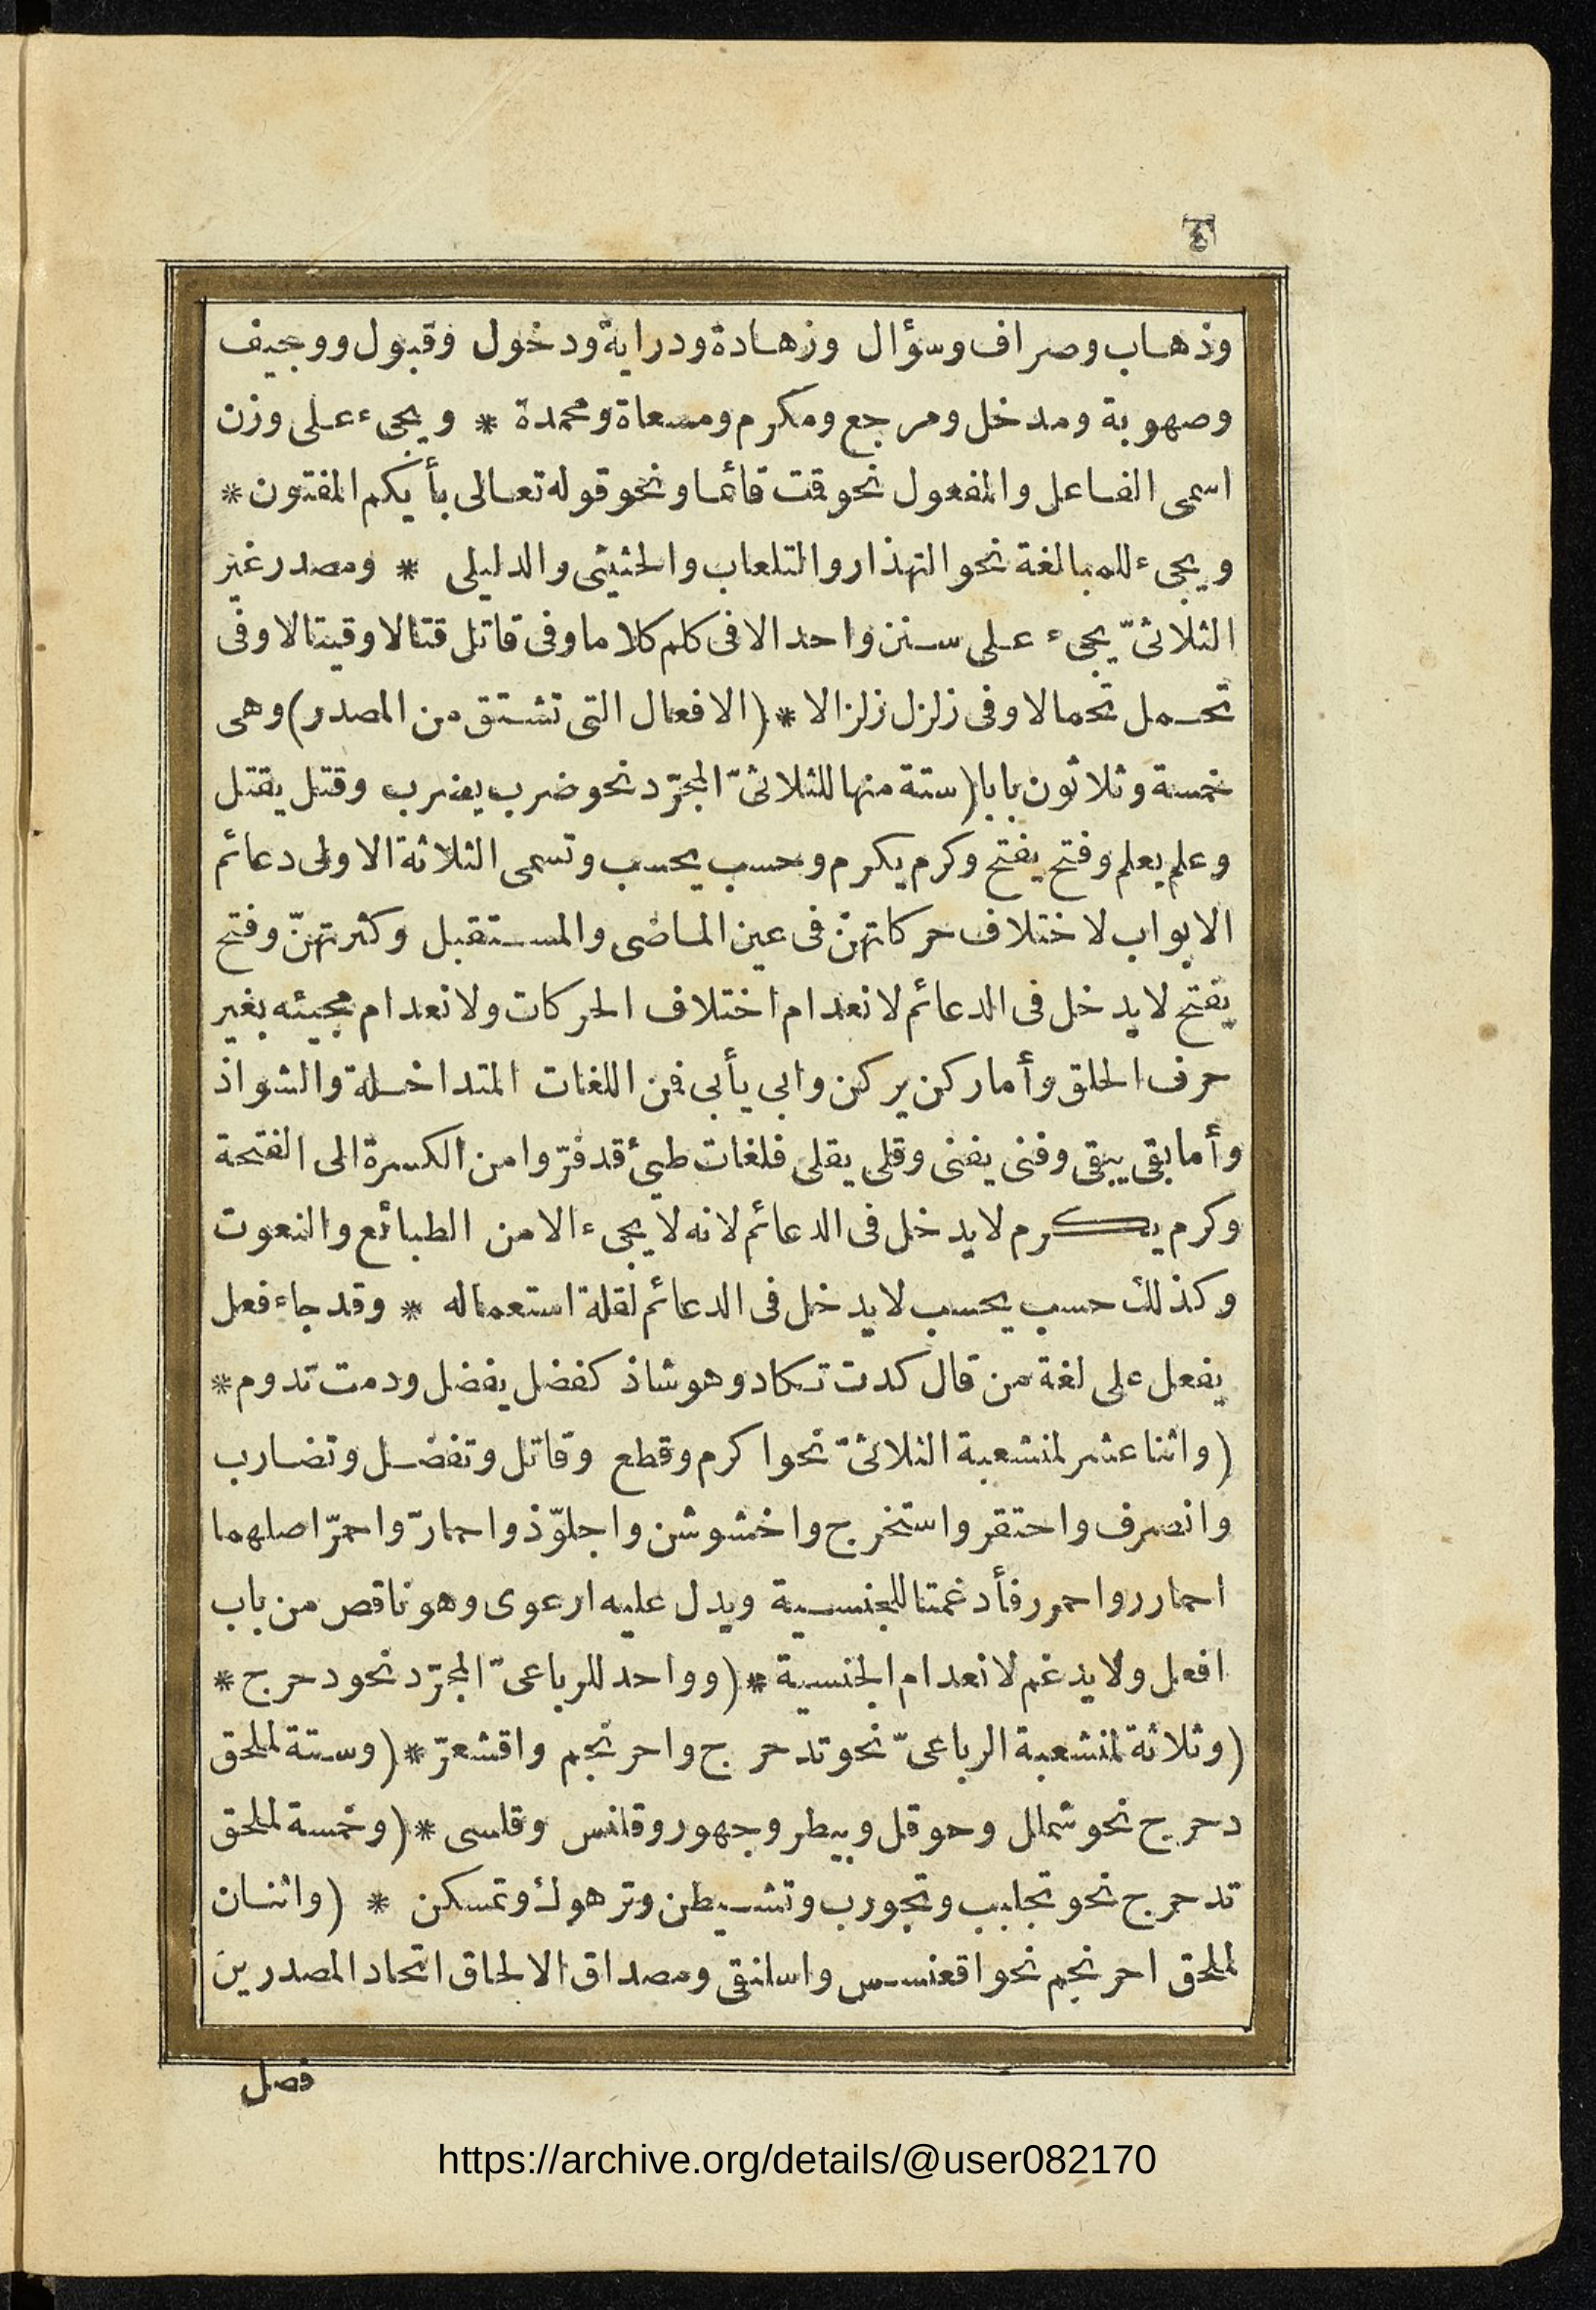 ٤
وذهاب وصراف وسؤال وزهادة ودراية ودخول وقبول ووجيف
وصهوبة ومدخل ومرجع ومكرم ومسعاة ومحمدة * ويجىء على وزن
اسمى الفاعل والمفعول نحو قمت قائما ونحو قوله تعالى بأيكم المفتون *
ويجىء للمبالغة نحو التهذار والتلعاب والحثيثى والدليلى * ومصدر غير
الثلاثىّ يجىء على سنن واحد الا فى كلم كلاما وفى قاتل قتالا وقيتالا وفى
تحمل تحمالا وفى زلزل زلزالا * (الافعال التى تشتق من المصدر) وهى
خمسة وثلاثون بابا (ستة منها للثلاثىّ المجرّد نحو ضرب يضرب وقتل يقتل
وعلم يعلم وفتح يفتح وكرم يكرم وحسب يحسب وتسمى الثلاثة الاولى دعائم
الابواب لاختلاف حركاتهنّ فى عين الماضى والمستقبل وكثرتهنّ وفتح
يفتح لا يدخل فى الدعائم لانعدام اختلاف الحركات ولانعدام مجيئه بغير
حرف الحلق وأما ركن يركن وابى يأبى فمن اللغات المتداخلة والشواذ
وأما بقى يبقى وفنى يفنى وقلى يقلى فلغات طىئ قد فرّوا من الكسرة الى الفتحة
وكرم يكرم لا يدخل فى الدعائم لانه لا يجىء الا من الطبائع والنعوت
وكذلك حسب يحسب لا يدخل فى الدعائم لقلة استعماله * وقد جاء فعل
يفعل على لغة من قال كدت تكاد وهو شاذ كفضل يفضل ودمت تدوم *
(واثنا عشر لمنشعبة الثلاثىّ نحو اكرم وقطع وقاتل وتفضل وتضارب
وانصرف واحتقر واستخرج واخشوشن واجلوّذ واحمارّ واحمرّ اصلهما
احمارر واحمرر فأدغمتا للجنسية ويدل عليه ارعوى وهو ناقص من باب
افعل ولا يدغم لانعدام الجنسية * (وواحد للرباعىّ المجرّد نحو دحرج *
(وثلاثة لمنشعبة الرباعىّ نحو تدحرج واحرنجم واقشعرّ * (وستة لملحق
دحرج نحو شملل وحوقل وبيطر وجهور وقلنس وقلسى * (وخمسة لملحق
تدحرج نحو تجلبب وتجورب وتشيطن وترهوك وتمسكن * (واثنان
لملحق احرنجم نحو اقعنسس واسلنقى ومصداق الالحاق اتحاد المصدرين
فصل
https://archive.org/details/@user082170